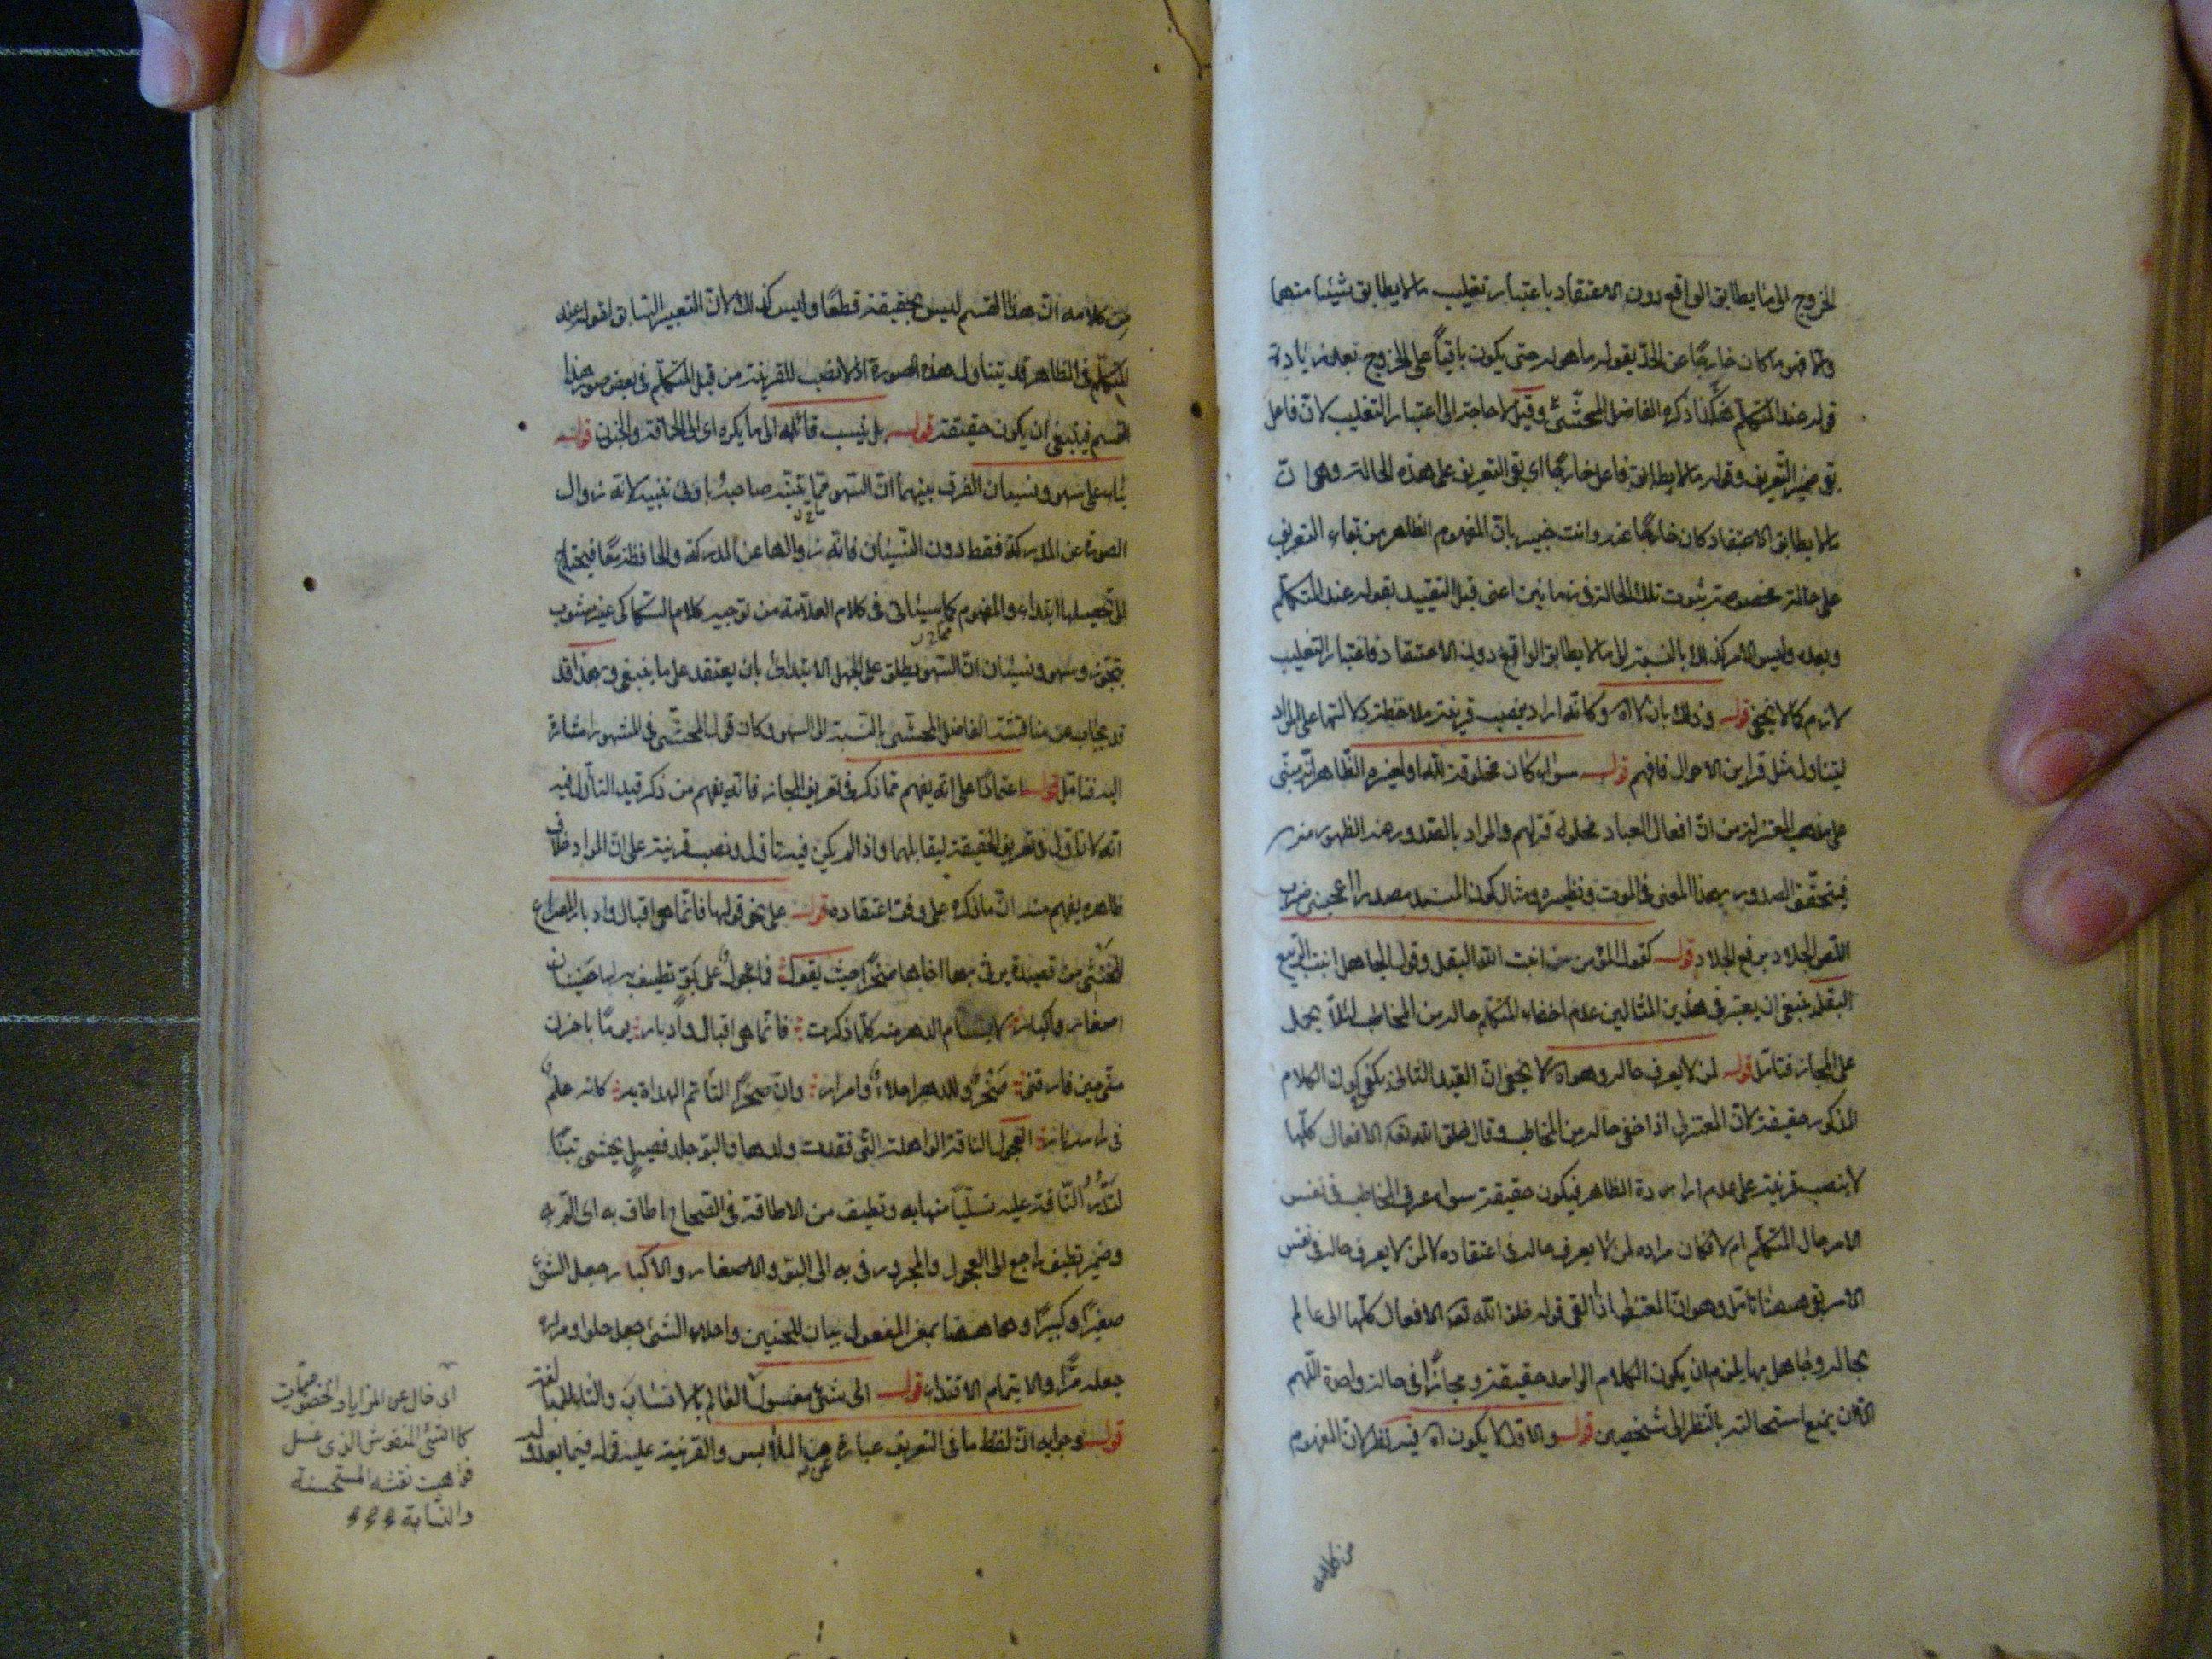 الخروج الى ما يطابق الواقع دون الاعتقاد باعتبار تغليب ما لا يطابق شيئا منهما
وانما ضم ما كان خارجًا عن الحد بقوله ما هو له حتى يكون باقياً على الخروج بعد زيادة
قوله عند المتكلم هكذا ذكره الفاضل المحشّى وقيل لا حاجة الى اعتبار التغليب لانّ فاعل
بقى ضمير التّعريف وقوله ما لا يطابق فاعل خارجًا اى بقى التعريف على هذه الحالة وهى انّ
ما لا يطابق الاعتقاد كان خارجًا عنه وانت خبير بانّ المفهوم الظاهر من بقاء التعريف
على حالة مخصوصة ثبوت تلك الحالة فى زمانين اعنى قبل التقييد بقوله عند المتكلم
وبعده وليس الامر كذلك بالنسبة الى ما لا يطابق الواقع دون الاعتقاد فاعتبار التغليب
لازم كما لا يخفى قوله وذلك بان لا اه وكانّه اراد بنصب قرينة ملاحظة دلالتها على المراد
ليتناول مثل قراين الاحوال فافهم قوله سواء كان مخلوقة لله او لغيره الظّاهر انّه مبنّى
على مذهب المعتزلة من انّ افعال العباد مخلوقة لهم والمراد بالصدور هنا الظهور منه
فيتحقّق الصدور بهذا المعنى فى الموت ونظيره ومثال كون المسند مصدرا اعجبنى ضرب
اللّص الجلاد برفع الجلاد قوله كقول المؤمن انبت الله البقل وقول الجاهل انبت الربيع
البقل ينبغى ان يعتبر فى هذين المثالين عدم اخفاء المتكلم حاله من المخاطب لئلّا يحمل
على المجاز فتامّل قوله لمن لا يعرف حاله وهو اه لا يخفى انّ القيد الثانى يكفى كون الكلام
المذكور حقيقة لانّ المعتزلى اذا اخفى حاله من المخاطب وقال خلق الله تعه الافعال كلّها
لا ينصب قرينة على عدم ارادة الظاهر فيكون حقيقة سواء عرف المخاطب فى نفس
الامر حال المتكلم ام لا فكان مراده لمن لا يعرف حاله فى اعتقاده لا لمن لا يعرف حاله فى نفس
الامر بقى ههنا تامّل وهو انّ المعتزلى اذا القى قوله خلق الله تعه الافعال كلّها الى عالم
بحاله وجاهل بها يلزم ان يكون الكلام الواحد حقيقة ومجازًا فى حالة واحدة اللّهم
الا ان يمنع استحالته بالنّظر الى شخصين قوله والاوّل لا يكون اه فيه نظر لانّ المفهوم
من كلامه
من كلامه انّ هذا القسم ليس بحقيقة قطعًا وليس كذلك لانّ التعبير السّابق لقوله عند
المتكلّم فى الظاهر قد يتناول هذه الصورة اذ لا نصب للقرينة من قبل المتكلّم فى بعض صور هذا
القسم فينبغى ان يكون حقيقة قوله بل ينسب قائله الى ما يكره اى الى الحماقة والجنون قوله
بناء على سهو ونسيان الفرق بينهما انّ السّهو ممّا يتنبّه صاحبه بادنى تنبيه لانّه زوال
الصورة عن المدركة فقط دون النّسيان فانّه زوالها عن المدركة والحافظة معًا فيحتاج
الى تحصيلها ابتداء والمفهوم كما سيئاتى فى كلام العلّامة من توجيه كلام السّكاكى غير مشوب
بتجوّز وسهو ونسيان انّ السّهو يطلق على الجهل الابتدائى بان يعتقد على ما ينبغى وبهذا قد
قد يجاب عن مناقشة الفاضل المحشّى بالنّسبة الى السهو وكان قول المحشّى فى المشهور اشارة
اليه فتامّل قوله اعتمادًا على انّه يفهم ممّا ذكر فى تعريف المجاز فانّه يفهم من ذكر قيد التأوّل فيه
انّه لا تاوّل فى تعريف الحقيقة ليقابلهما واذا لم يكن فيه تأوّل ونصب قرينة على انّ المراد خلاف
ظاهره يفهم منه انّ ما ذكره على وفق اعتقاده قوله على نحو قولها فانّما هى اقبال وادبار المصراع
للخنثى من قصيدة يرثى بها اخاها صخرًا حيث يقول فما عجول على بوّ تطيف به لها حنينان
اصغار واكبار لا يسئام الدهر منه كلّما ذكرت فانّما هى اقبال وادبار يومًا باحزن
منّى حين فارقنى صَخْرٌ وللدهر احلاءٌ وامرار وانّ صخرًا لتأتم الهداة به كانه علمٌ
فى راسه نار العجول الناقة الوالهة الّتى فقدت ولدها والبوّ جلد فصيل يحشى تبنًا
لتدرّ النّاقة عليه تسلّياً منها به وتطيف من الاطاقة فى الصّحاح اطاف به اى المّ به
وضمير تطيف راجع الى العجول والمجرور فى به الى البوّ والاصغار والاكبار جعل الشئ
صغيرًا وكبيرًا وهما ههنا بمعنى المفعول بيان للحنين واحلاء الشئ جعل حلوا ومراره
جعله مرًّا والايتمام الاقتداء قوله الى شئ مغسول الغالم بالانتساب والتاء للمبالغة
قوله وجوابه انّ لفظ ما فى التعريف عبارة عن الملابس والقرينة عليه قوله فيما بعد وله
اى خال عن المزايا والخصوصيّات
كالشّئ المنقوش الذى غسل
فذهبت نقشه المستحسنة